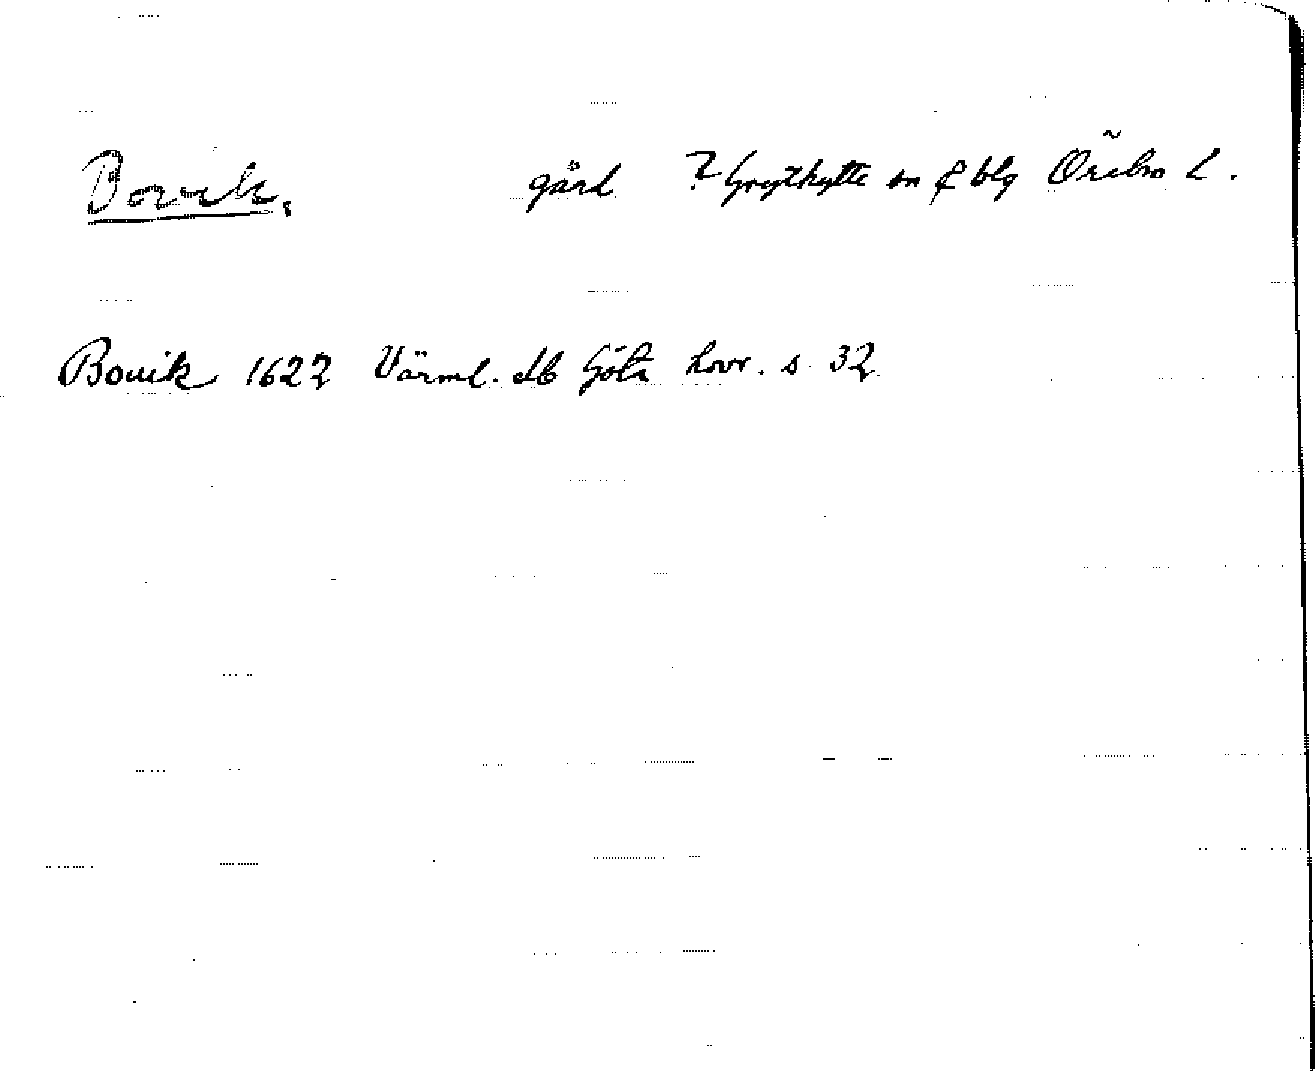 Bovik. gård ? Grythytte sn o blg Örebro l.
Bouik 1622 Värml. db Göta hovr. s 32